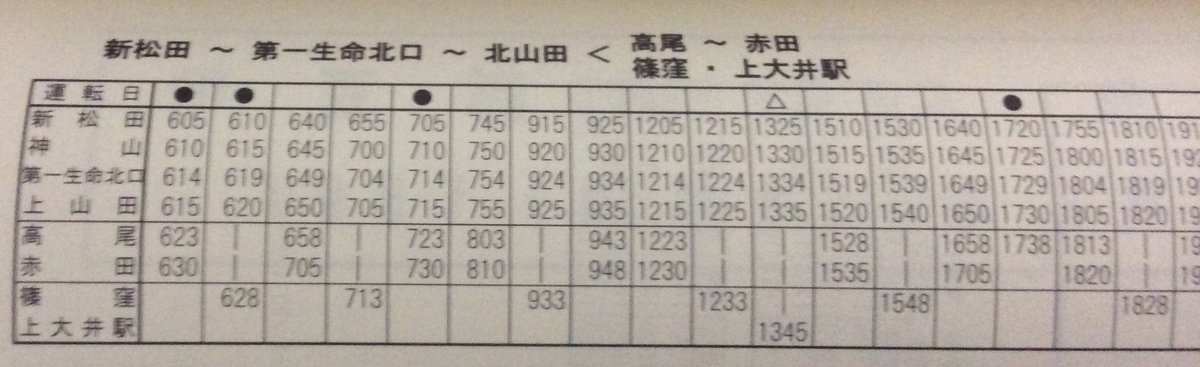 新松田 ～ 第一生命北口 ～ 北山田 < 高尾 ～ 赤田
篠窪・上大井駅
運転日 ● ● ● △ ●
新松田 605 610 640 655 705 745 915 925 1205 1215 1325 1510 1530 1640 1720 1755 1810
神山 610 615 645 700 710 750 920 930 1210 1220 1330 1515 1535 1645 1725 1800 1815
第一生命北口 614 619 649 704 714 754 924 934 1214 1224 1334 1519 1539 1649 1729 1804 1819
上山田 615 620 650 705 715 755 925 935 1215 1225 1335 1520 1540 1650 1730 1805 1820
高尾 623 | 658 | 723 803 | 943 1223 | | 1528 | 1658 1738 1813 |
赤田 630 | 705 | 730 810 | 948 1230 | | 1535 | 1705 | 1820 |
篠窪 628 713 933 1233 | 1548 1828
上大井駅 1345